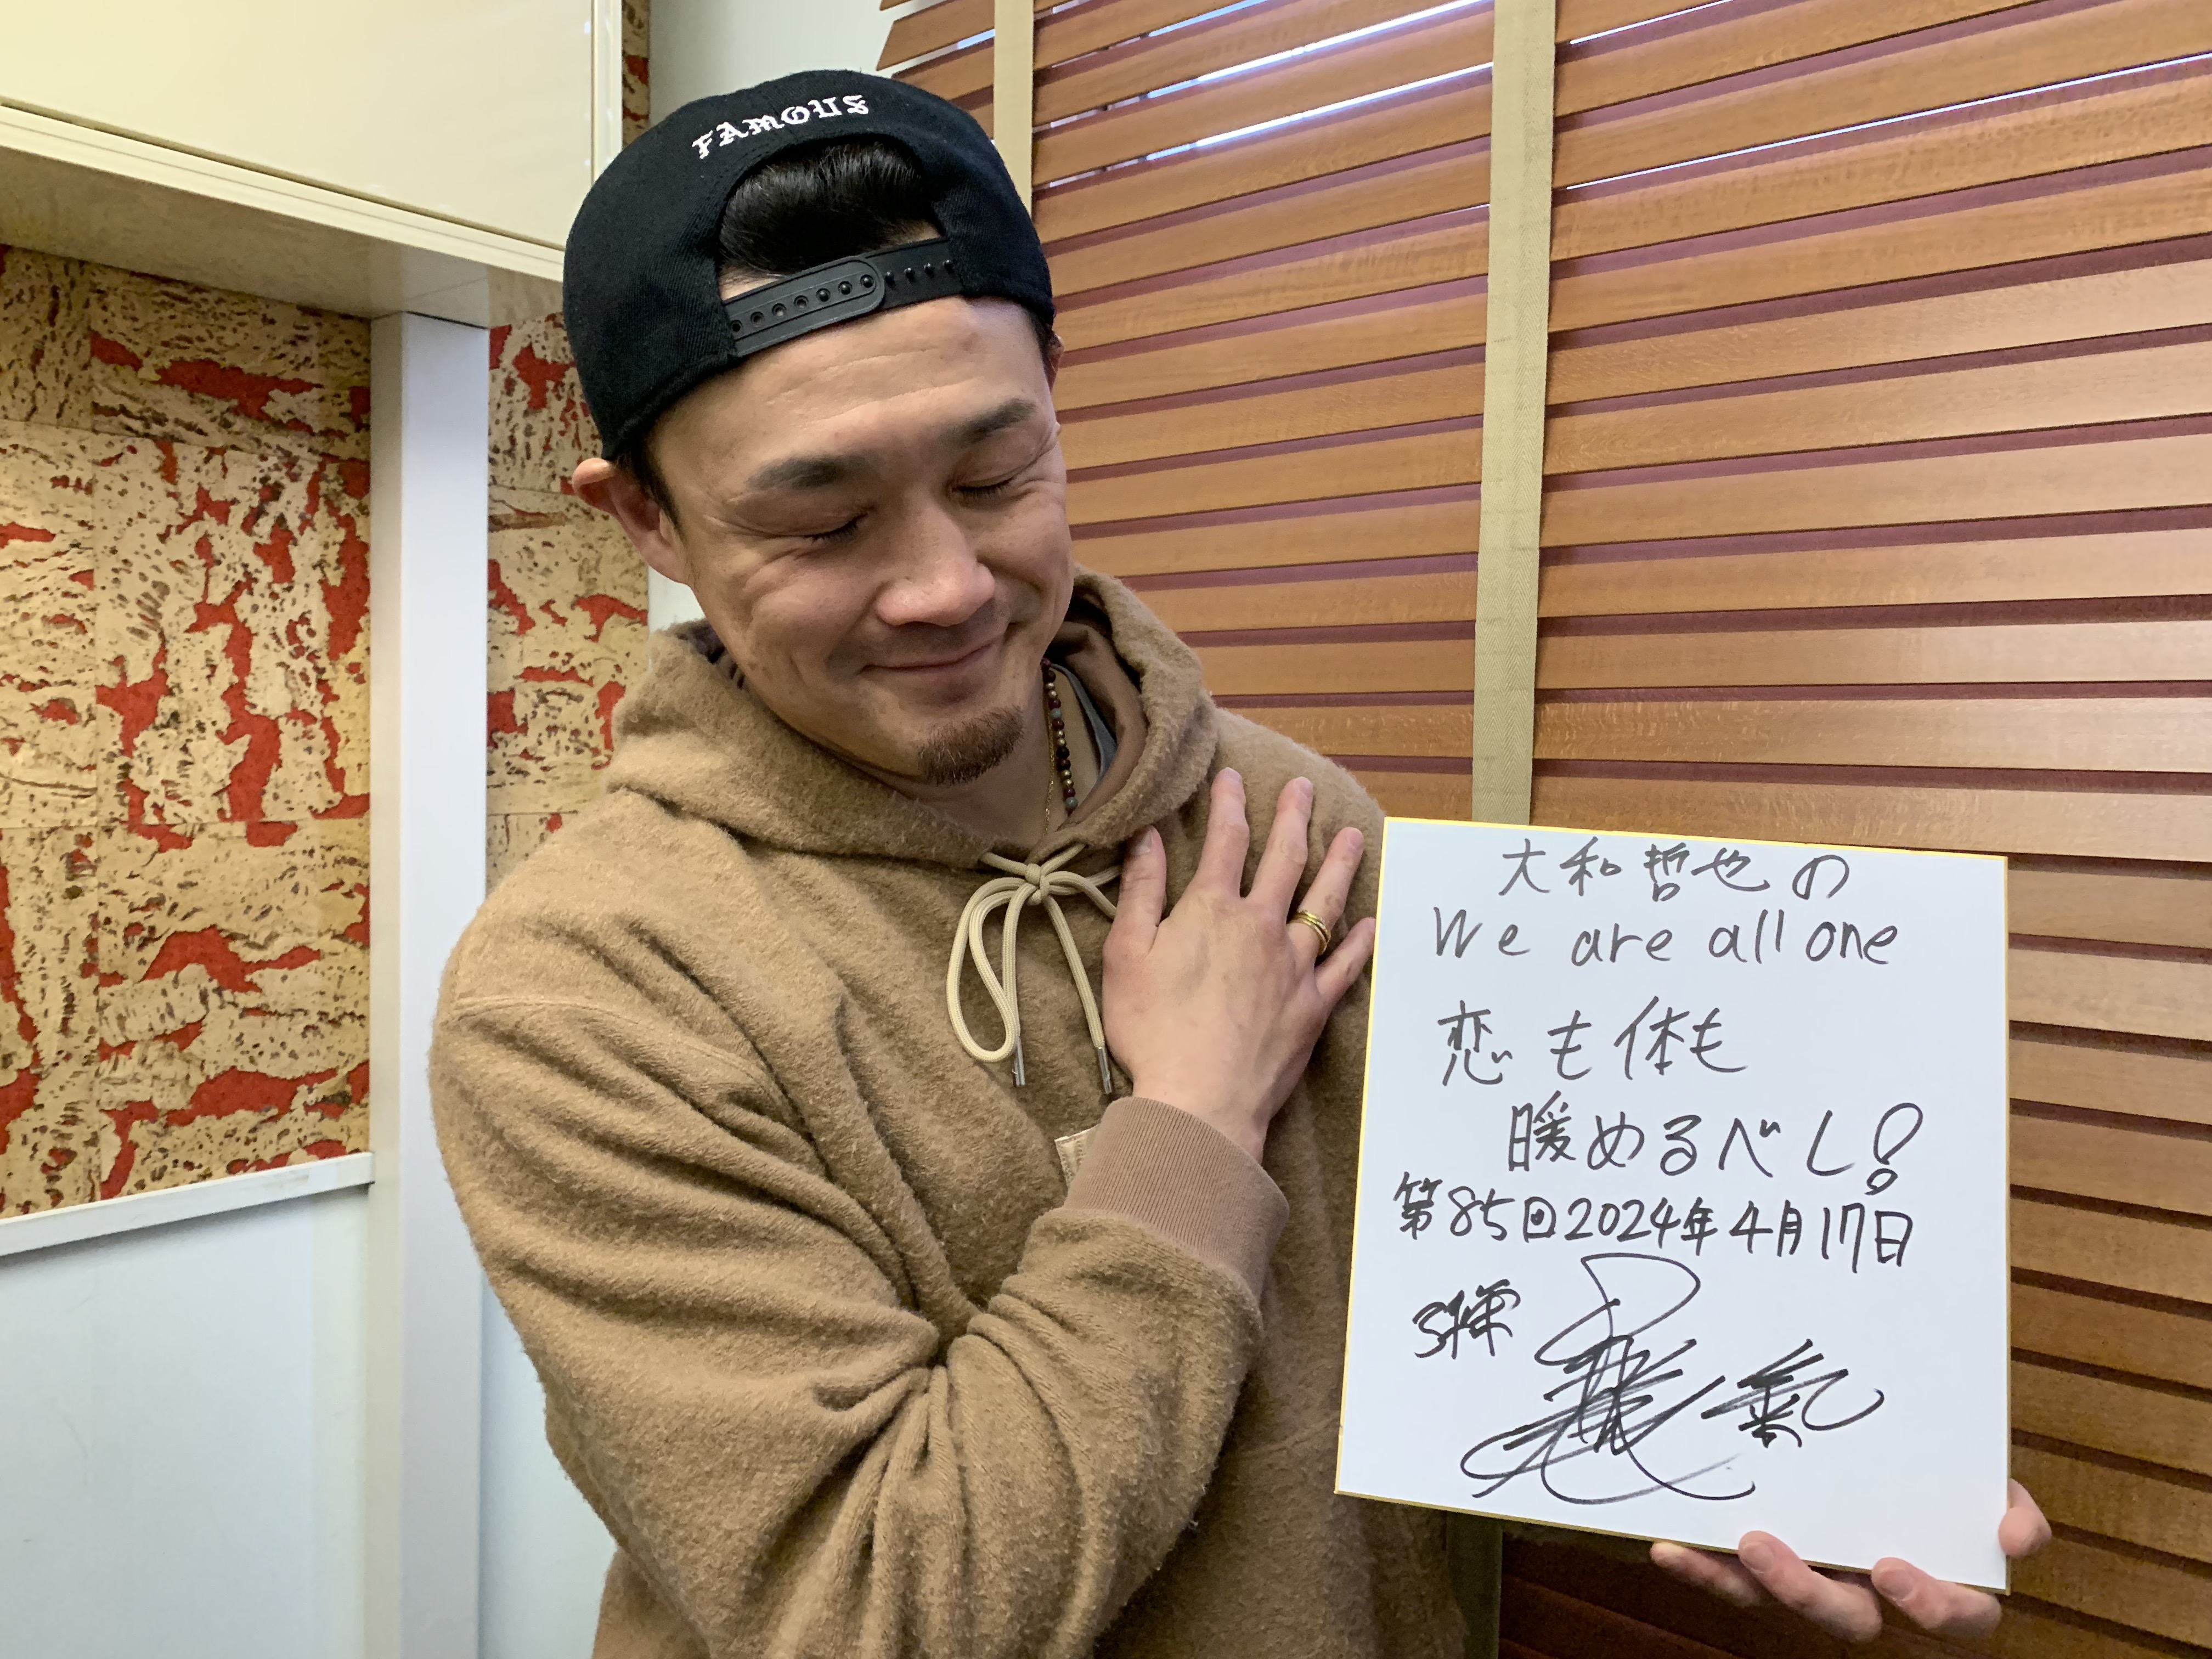 FAMOUS
大和哲也の
We are all one
恋も体も
暖めるべし!
第85回2024年4月17日